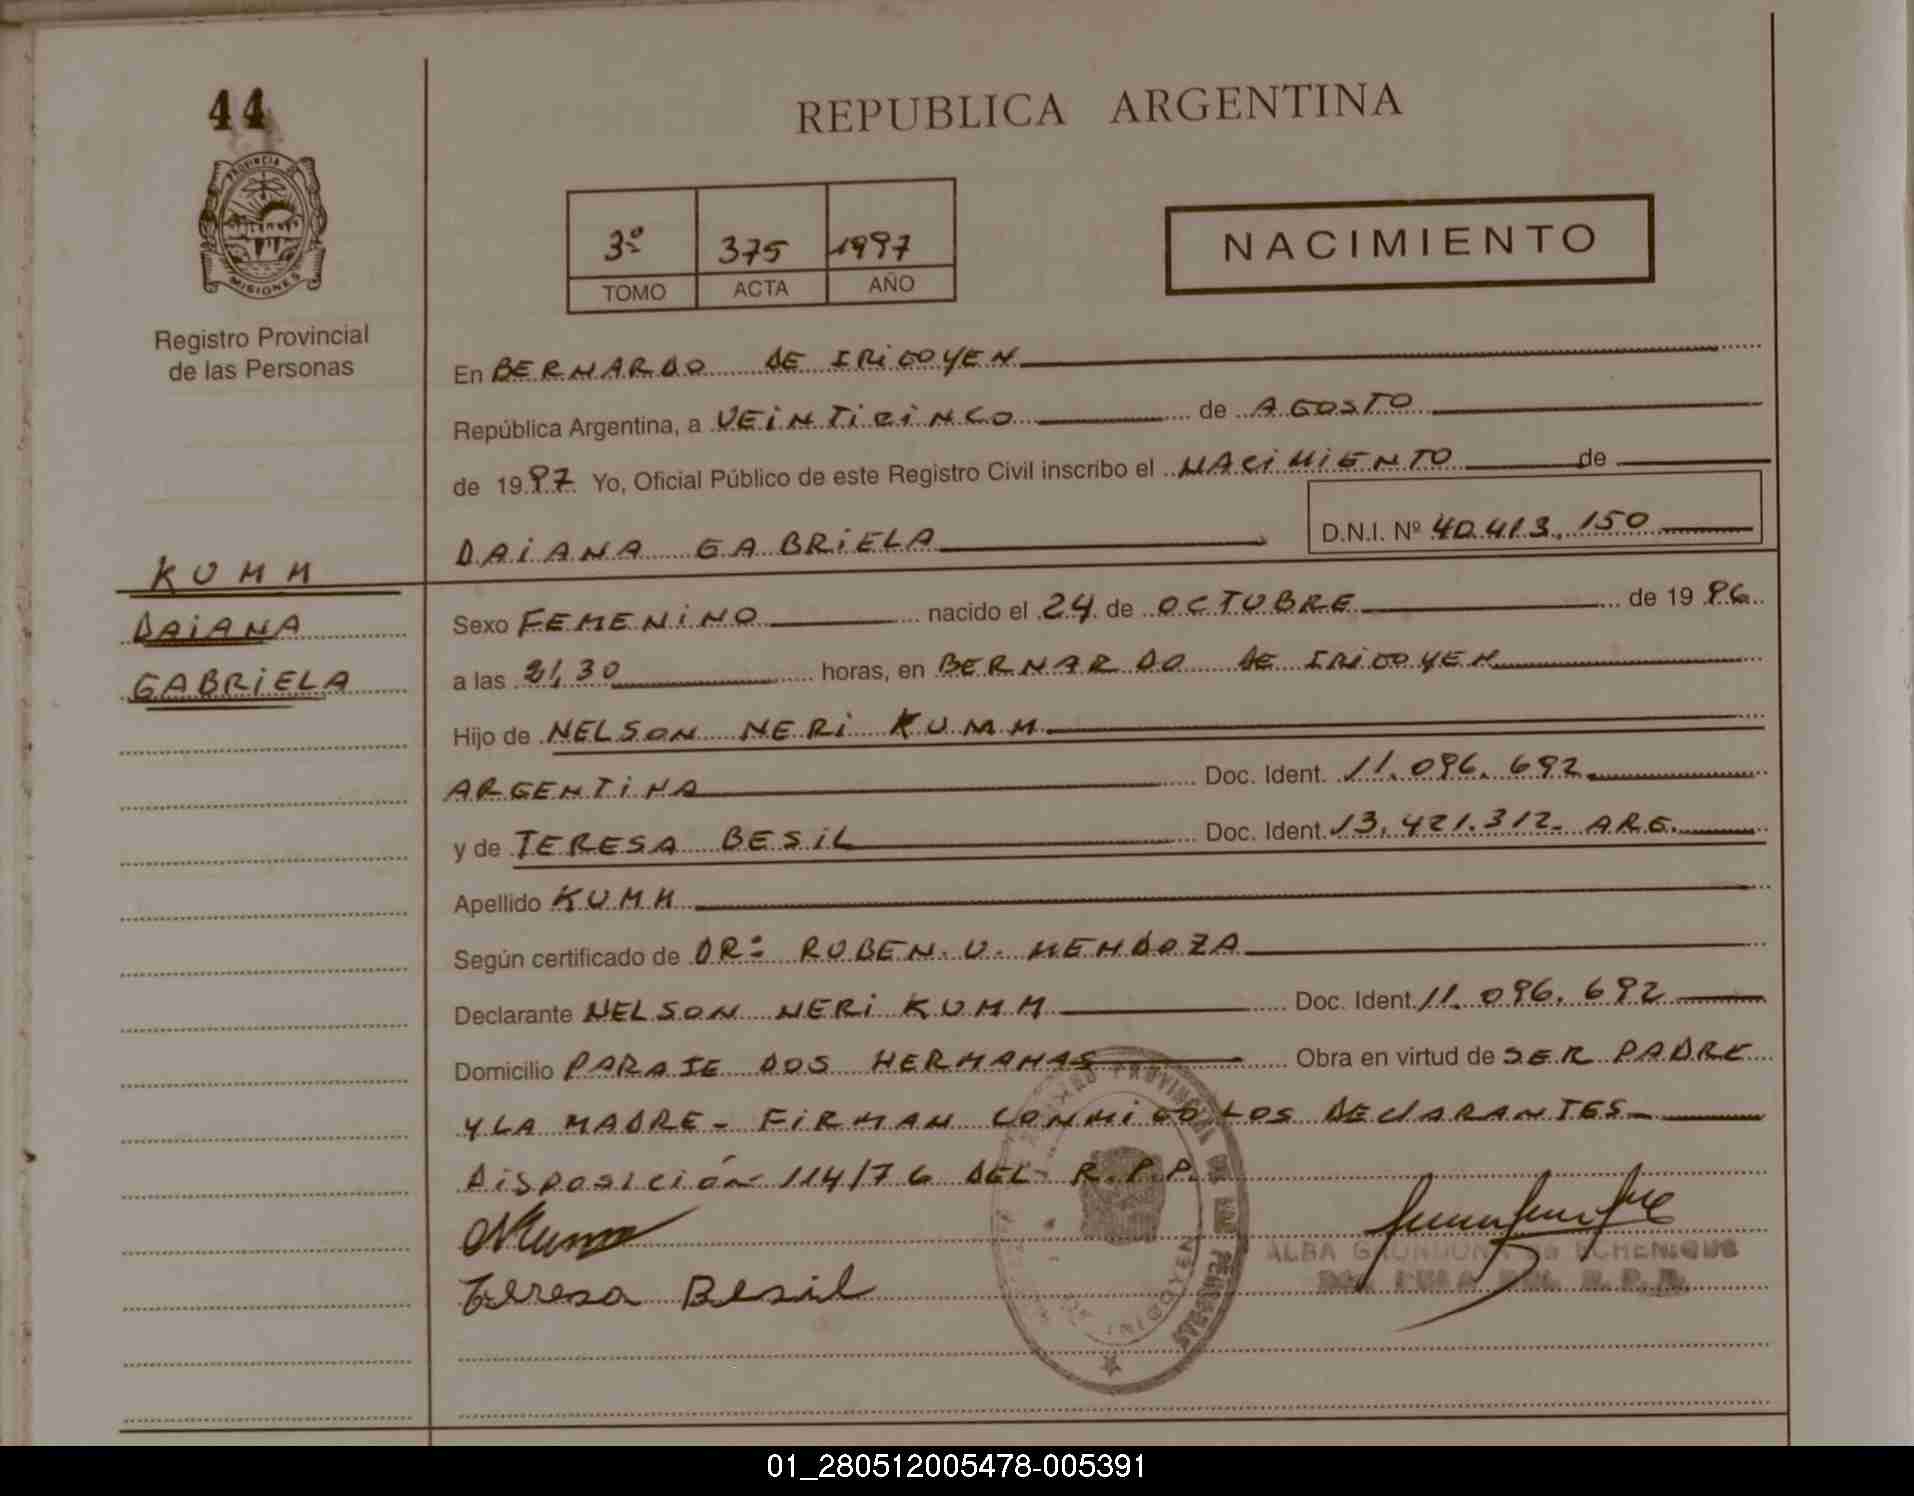 44
REPUBLICA ARGENTINA
PROVINCIA DE
MISIONES
Registro Provincial
de las Personas
3º 375 1997
TOMO ACTA AÑO
NACIMIENTO
En BERNARDO DE IRIGOYEN
República Argentina, a VEINTICINCO de AGOSTO
de 1997 Yo, Oficial Público de este Registro Civil inscribo el NACIMIENTO de
DAIANA GABRIELA D.N.I. Nº 40.413.150
KUMM
DAIANA
GABRIELA
Sexo FEMENINO nacido el 24 de OCTUBRE de 1996
a las 21,30 horas, en BERNARDO DE IRIGOYEN
Hijo de NELSON NERI KUMM
ARGENTINA Doc. Ident. 11.096.692
y de TERESA BESIL Doc. Ident. 13.421.312- ARG.
Apellido KUMM
Según certificado de DR: RUBEN. U. MENDOZA
Declarante NELSON NERI KUMM Doc. Ident. 11.096.692
Domicilio PARAJE DOS HERMANAS Obra en virtud de SER PADRE
Y LA MADRE - FIRMAN CONMIGO LOS DECLARANTES
DISPOSICIÓN 114/76 DEL R.P.P.
NKumm
Teresa Besil
ALBA DE ECHENIQUE
01_280512005478-005391